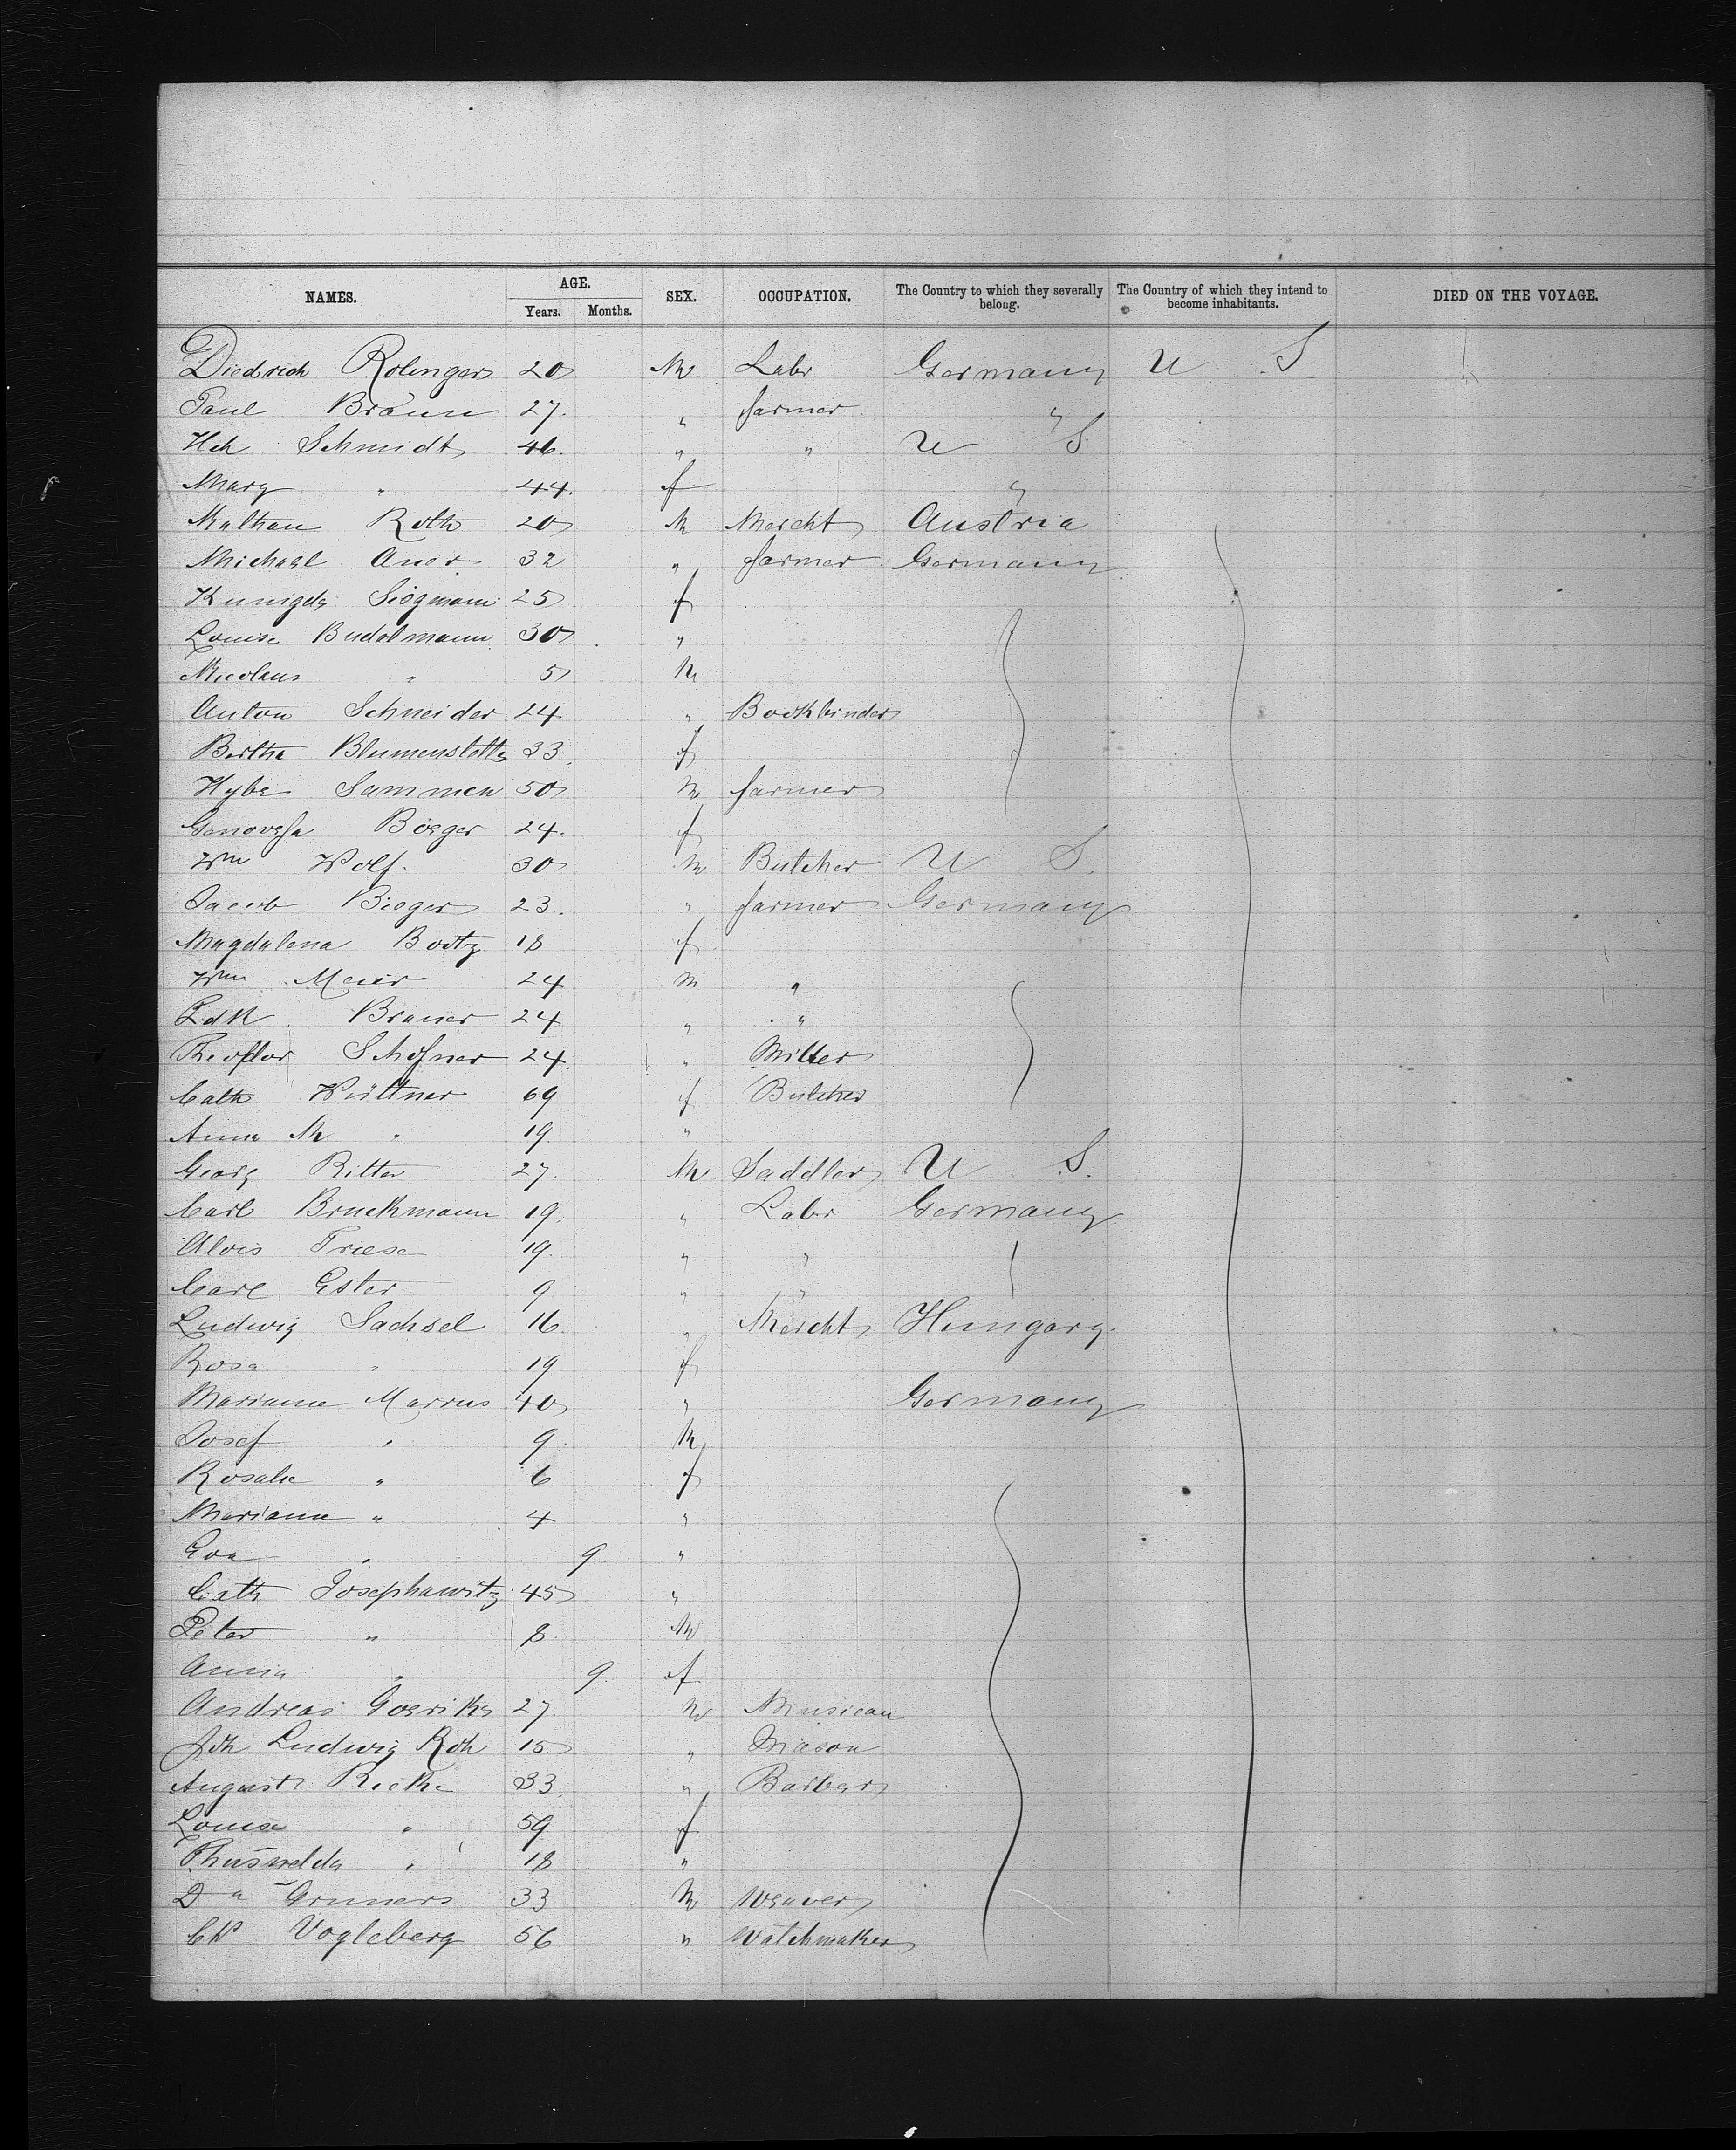 NAMES. AGE. SEX. OCCUPATION. The Country to which they severally belong. The Country of which they intend to become inhabitants. DIED ON THE VOYAGE.
Years. Months.
Diedrich Rolenger 20 M Labr Germany U S
Paul Braun 27. " farmer "
Hch Schmidt 46. " " U S.
Marg " 44. f "
Nathan Roth 20 M Mercht Austria
Michael Auer 32 " farmer Germany
Kunigda Siegmann 25 f
Louise Budelmann 30 "
Nicolaus " 5 M
Anton Schneider 24 " Bookbinder
Bertha Blumenstetts 33. f
Hybe Sammen 50 M farmer
Genovefa Boeger 24. f
Wm Wolf 30 M Butcher U S.
Jacob Bieger 23. " farmer Germany
Magdalena Bootz 18 f
Wm Meier 24 M "
Brauer 24 " "
Schofner 24. " Miller
Cath Wüttner 69 f Butcher
Anna M " 19. "
Georg Ritter 27. M Saddler U S.
Carl Bruckmann 19. " Labr Germany
Alois Friese 19. " "
Carl Ester 9 " "
Ludwig Sachsel 16. " Mercht Hungary.
Rosa " 19 f
Marianne Marrus 40 " Germany
Josef " 9. M
Rosalie " 6 f
Mariann " 4 "
Eva " 9. "
Cath Josephawitz 45 "
Peter " 8. M
Anna " 9. f
Andreas Goerike 27. M Musican
Joh Ludwig Roh 15 " Mason
August Rieke 33. " Barber
Louise " 59 f
Thusnelda " 18 "
Da Gruners 33 M Weaver
Chs Vogleberg 56 " Watchmaker